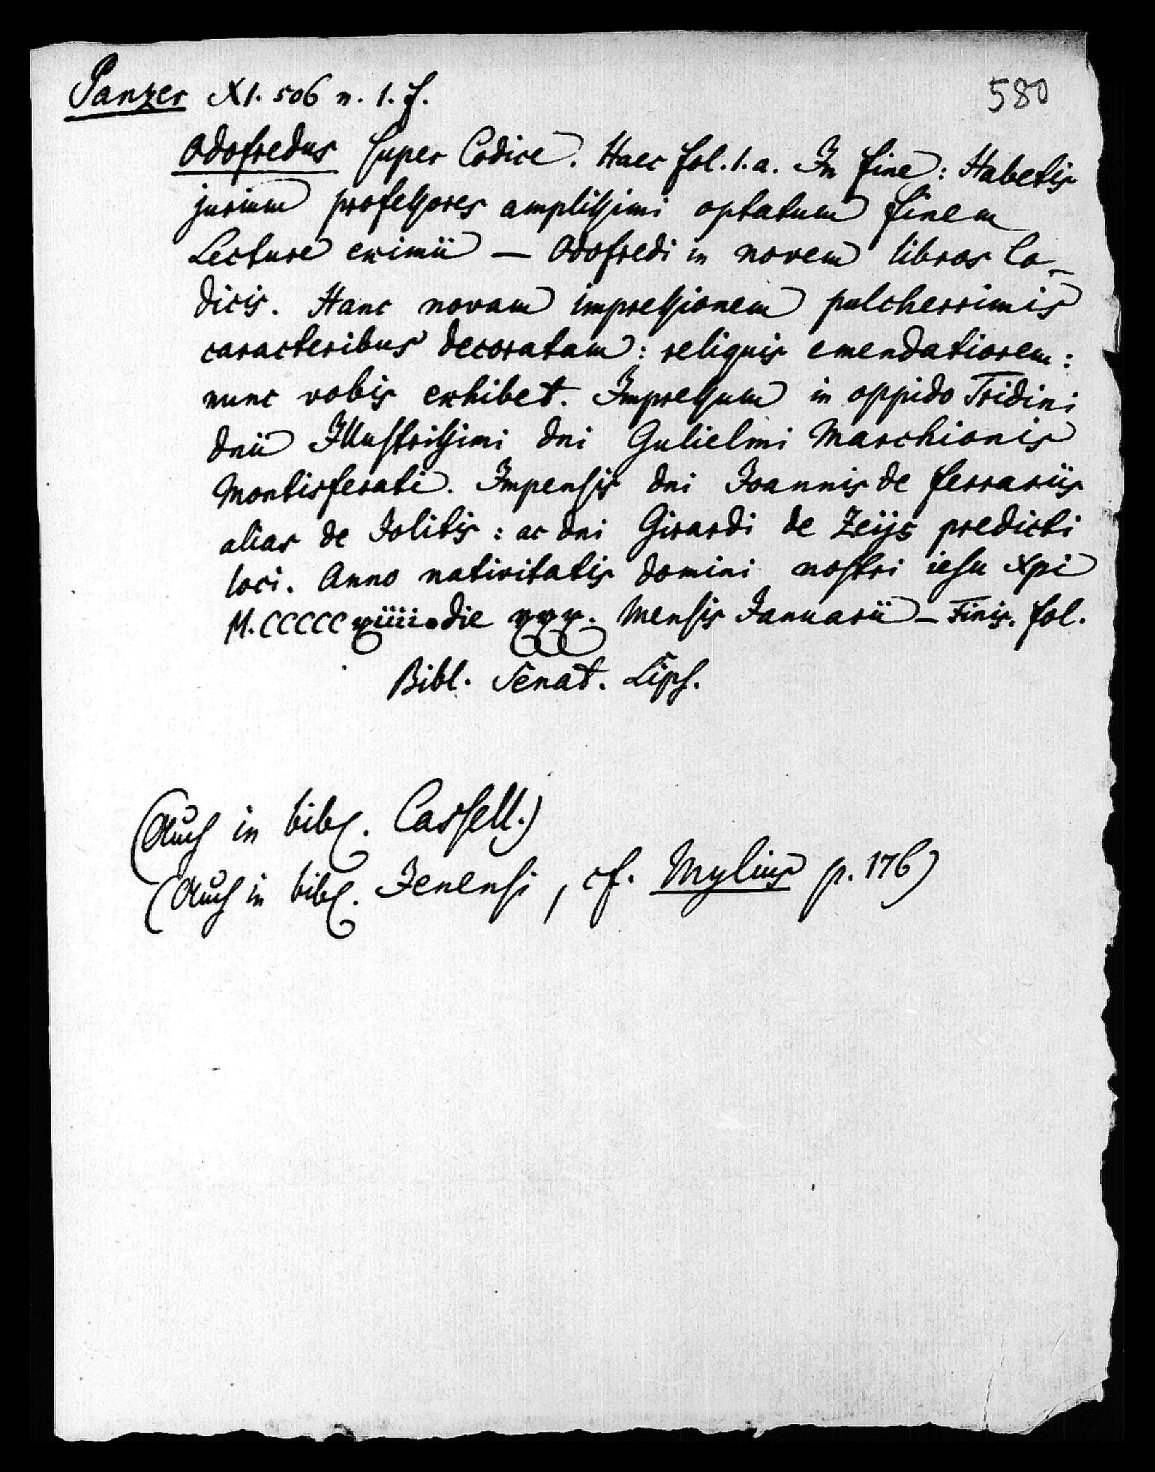 Panzer XI. 506 n. 1. f.
580
Odofredus super Codice. Haec fol. 1. a. In fine: Habetis
jurium professores amplissimi optatum finem
Lecture eximii — Odofredi in novem libros Co-
dicis. Hanc novam impressionem pulcherrimis
caracteribus decoratam: reliquis emendatiorem:
nunc vobis exhibet. Impressum in oppido Tridini
dnii Illustrissimi dni Gulielmi Marchionis
Montisferati. Impensis dni Joannis de ferrariis
alias de Jolitis: ac dni Girardi de Zeijs predicti
loci. Anno nativitatis domini nostri iesu xpi
M.CCCCC xiiii. die xxx. Mensis Januarii — Finis. fol.
Bibl. Senat. Lips.
(Auch in bibl. Cassell.)
(Auch in bibl. Jenensi, cf. Mylius p. 176)